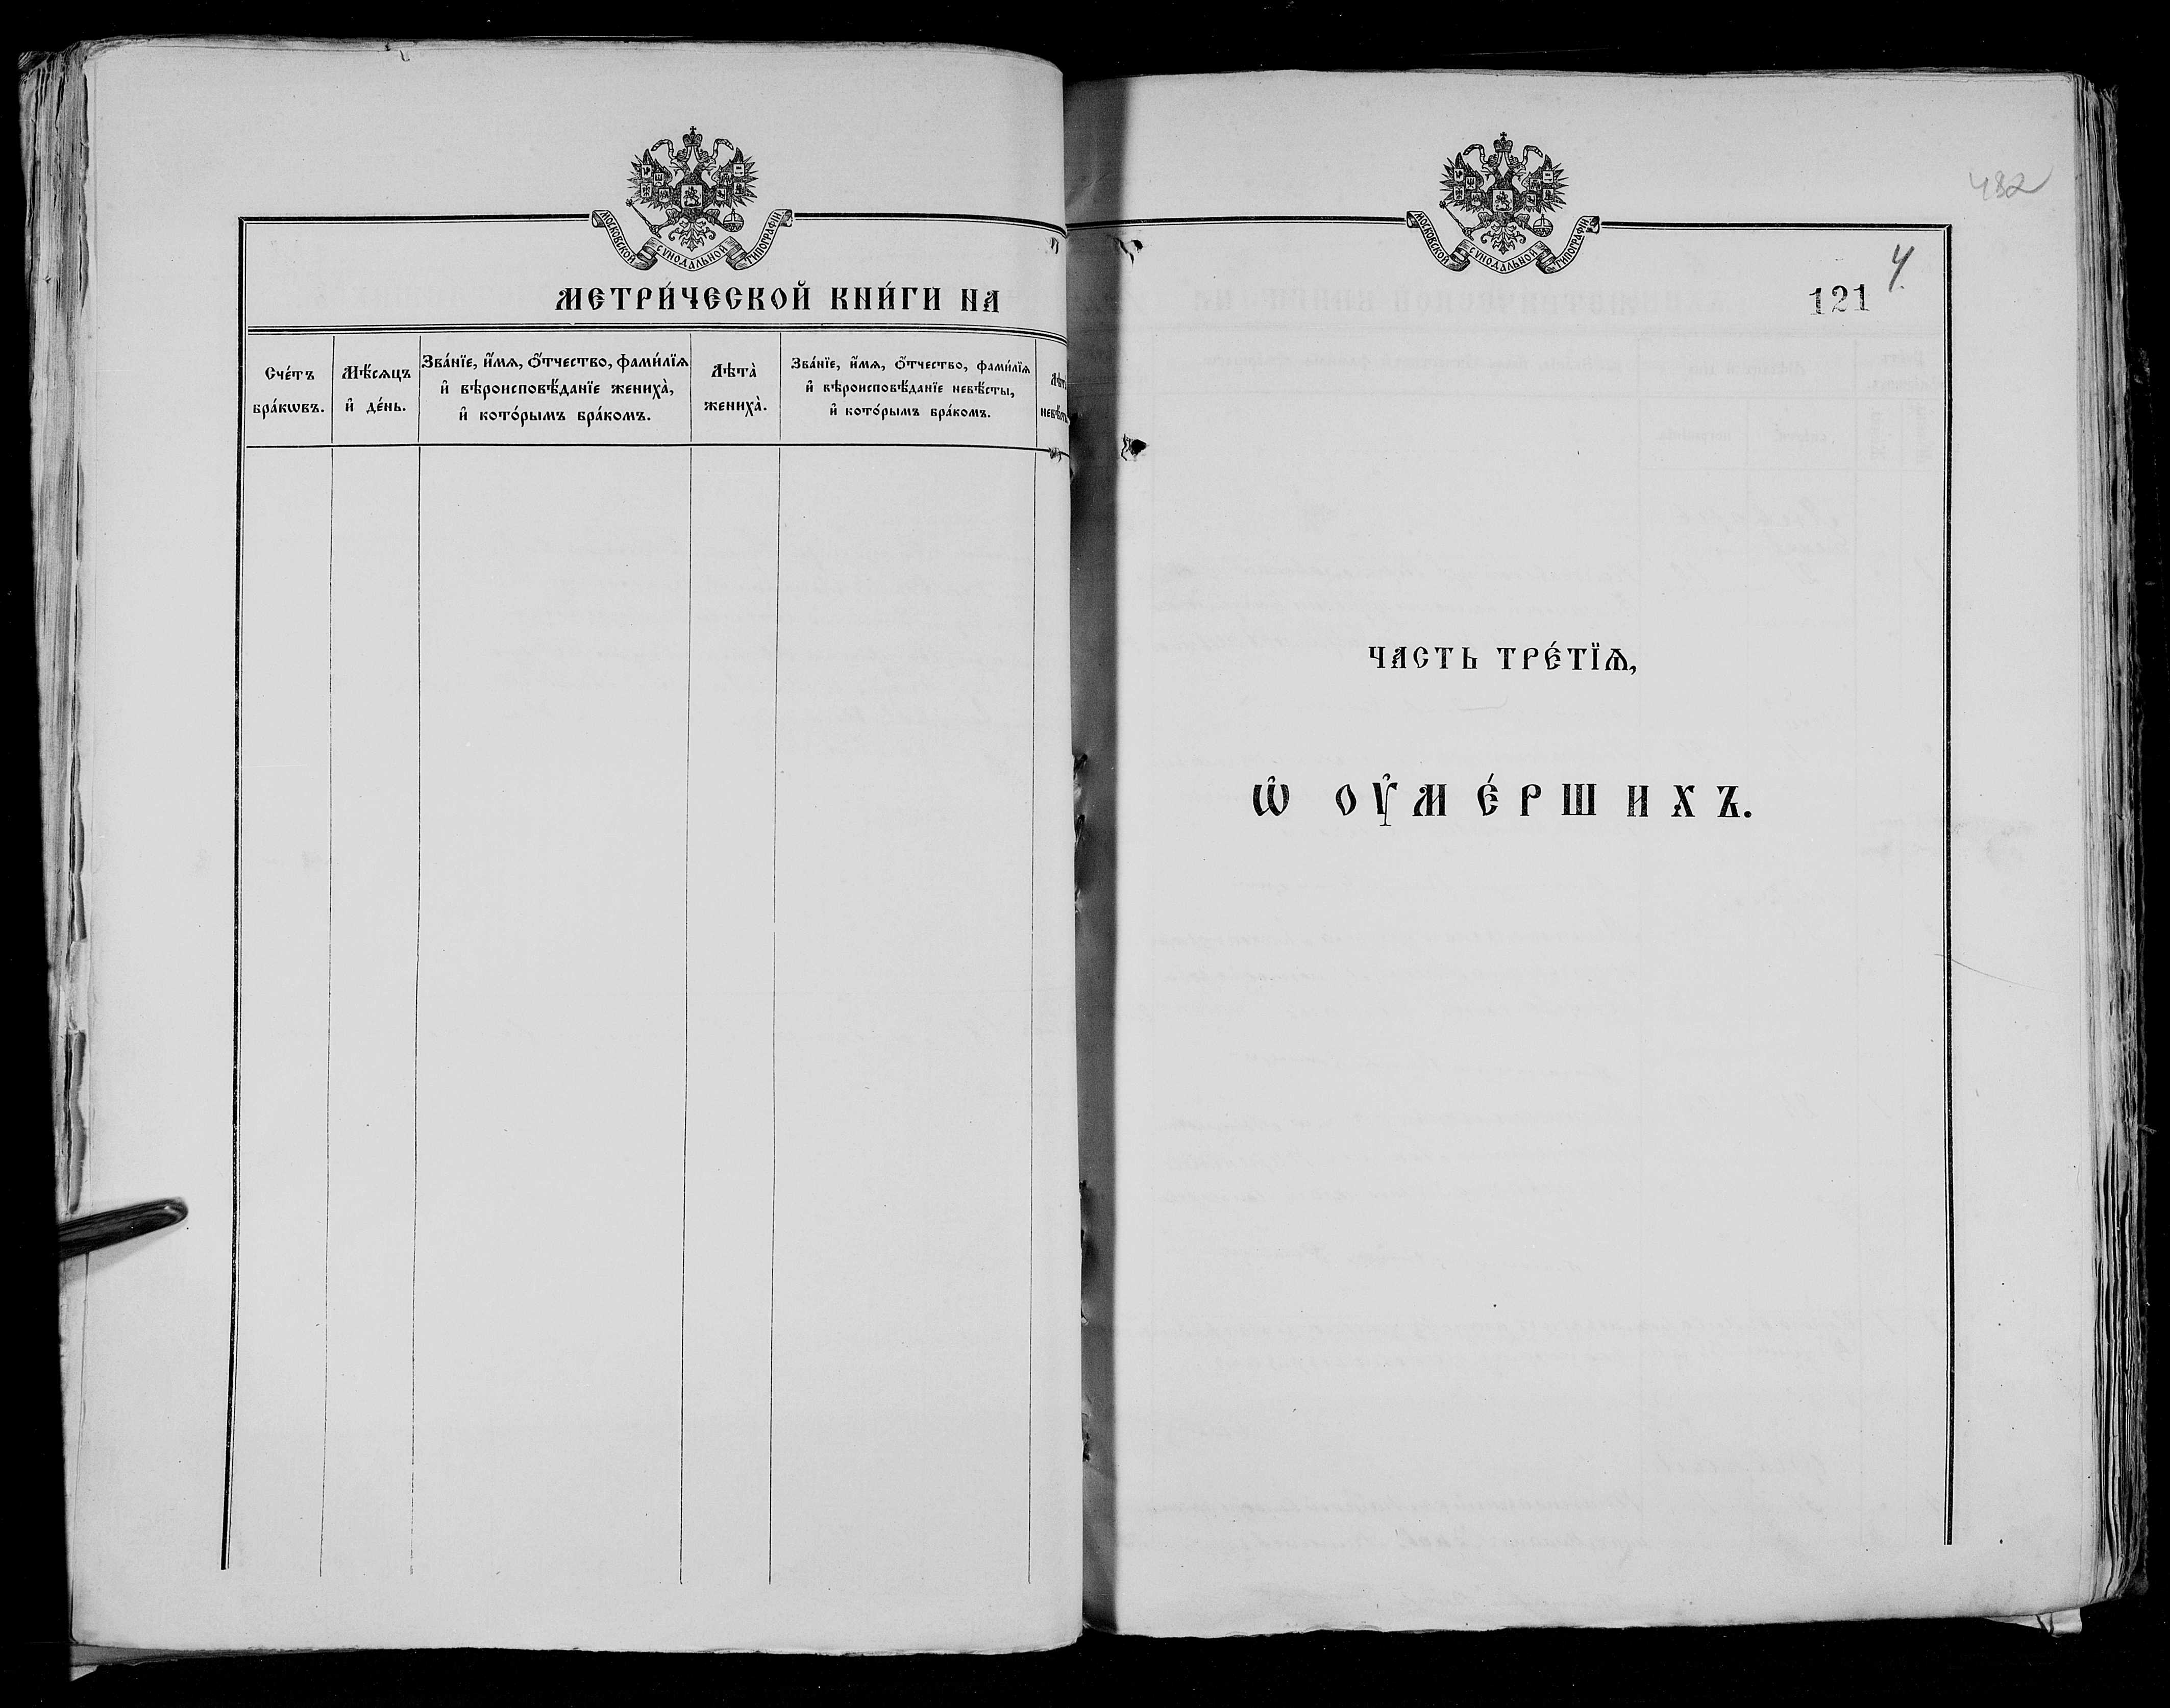 МОСКОВСКОЙ СѴНОДАЛЬНОЙ ТИПОГРАФІИ
МЕТРИ́ЧЕСКОЙ КНИ́ГИ НА
Сче́тъ бра́кѡвъ.
Мѣ́сѧцъ и҆ де́нь.
Зва́нїе, и҆́мѧ, ѻ҆́тчество, фами́лїѧ
и҆ вѣроисповѣ́данїе жениха̀,
и҆ кото́рымъ бра́комъ.
Лѣта̀ жениха̀.
Зва́нїе, и҆́мѧ, ѻ҆́тчество, фами́лїѧ
и҆ вѣроисповѣ́данїе невѣ́сты,
и҆ кото́рымъ бра́комъ.
МОСКОВСКОЙ СѴНОДАЛЬНОЙ ТИПОГРАФІИ
482
4.
121
ЧАСТЬ ТРЕ́ТЇѦ,
Ѡ҆ ОУ҆МЕ́РШИХЪ.